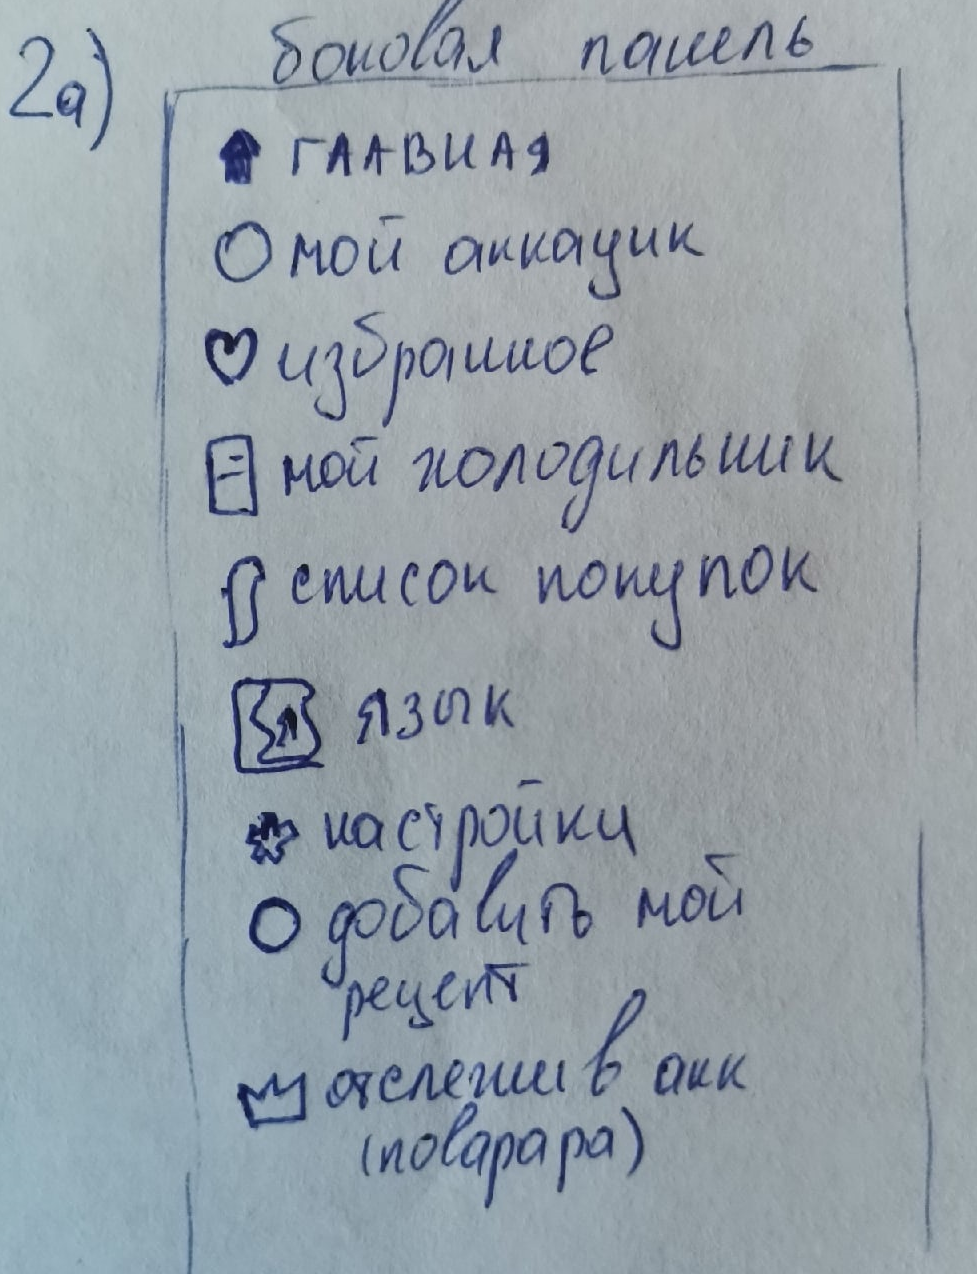 2а) боковая панель
ГЛАВНАЯ
мой аккаунк
избранное
мой холодильник
список покупок
язык
настройки
добавить мой
рецепт
отслежив акк
(поварара)